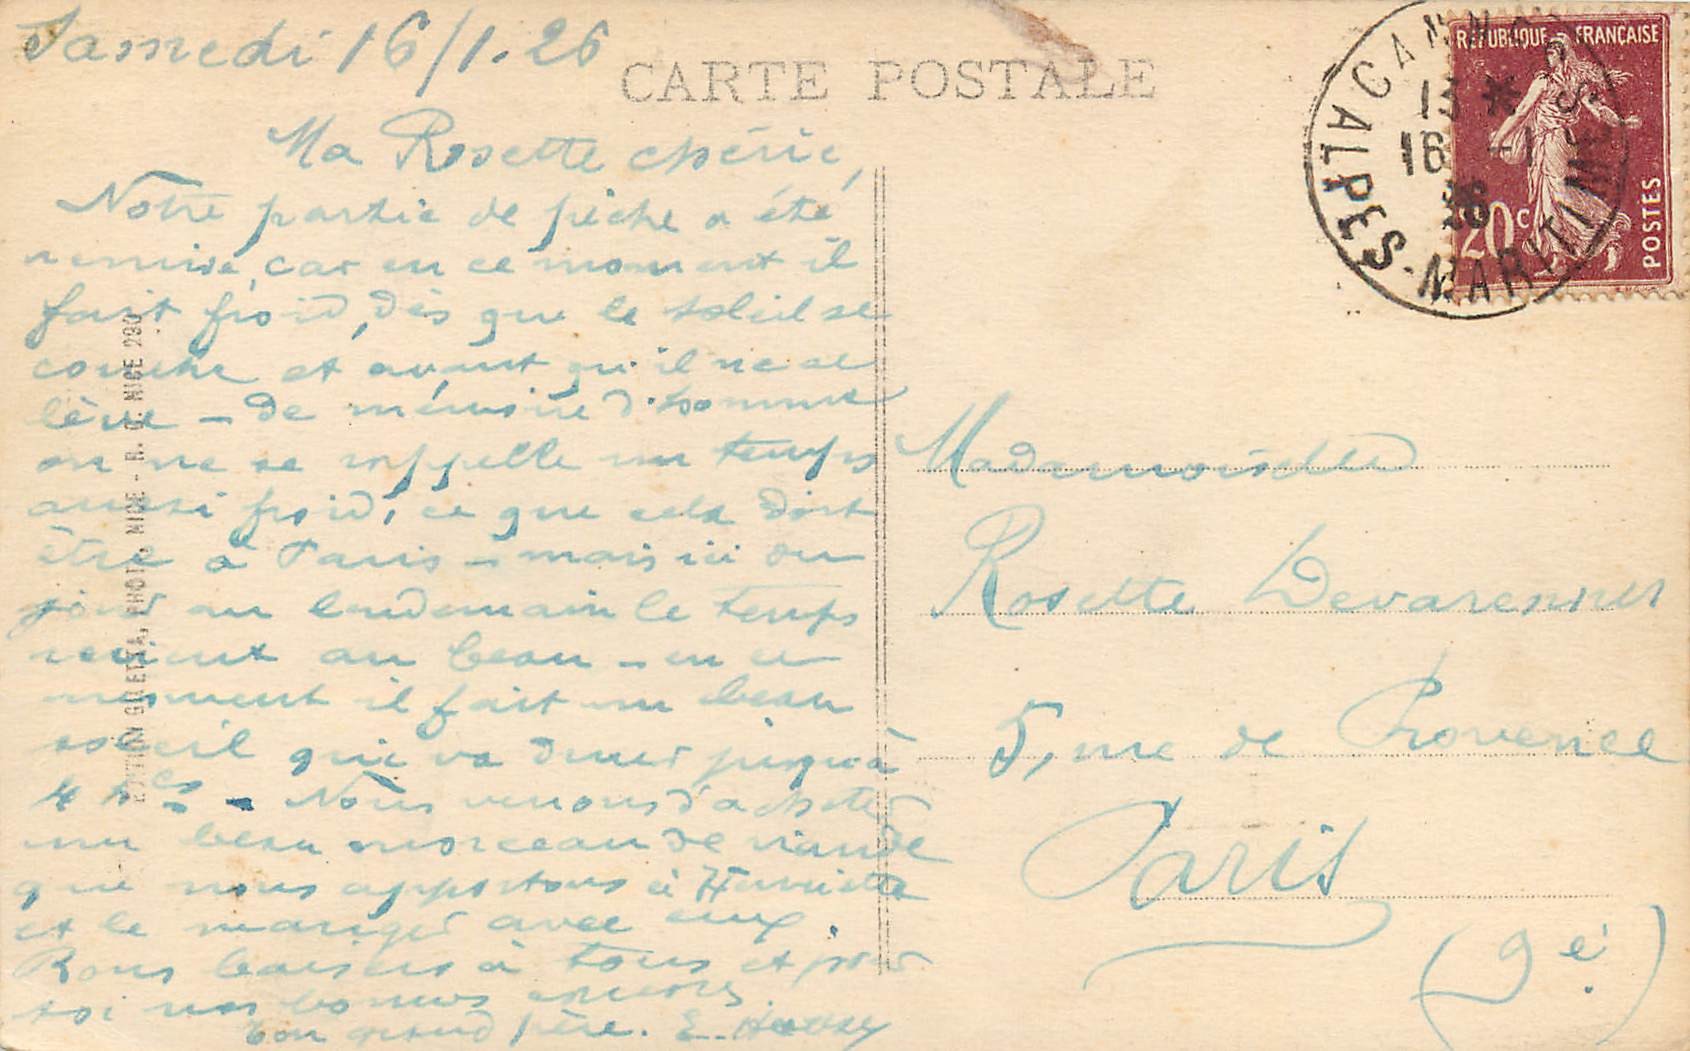 Samedi 16/1.26
CARTE POSTALE
Ma Rosette chérie,
Notre partie de pêche a été
remise, car en ce moment il
fait froid, dès que le soleil se
couche et avant qu'il ne se
lève – de mémoire d'homme
on ne se rappelle un temps
aussi froid, ce que cela doit
être à Paris – mais ici du
jour au lendemain le temps
revient au beau – en ce
moment il fait un beau
soleil qui va durer jusqu'à
4 hres – Nous venons d'acheter
un beau morceau de viande
que nous apportons à Henriette
et le manger avec eux.
Bons baisers à tous et pour
toi nos bonnes
Ton grand père. E.
EDITION GILETTA, PHOT., NICE - R. C. NICE 230
CANNES
ALPES-MARITIMES
13 *
16 -1
26
REPUBLIQUE FRANÇAISE
20c
POSTES
Mademoiselle
Rosette Devarennes
5, rue de Provence
Paris
(9e)